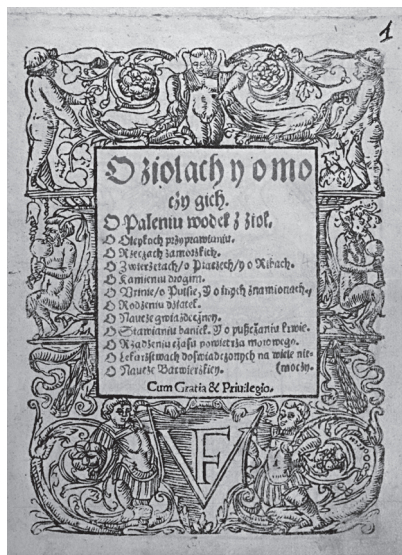 1
O ziolach y o mo
czy gich.
O Paleniu wodek z ziol.
O Oleykoch przyprawianiu.
O Rzeczach zamorskich.
O Zwierzetach/o Ptaczech/y o Rybach.
O Kamieniu drogim.
O Urinie/o Pulsie, Y o inych znamionach.
O Rodzeniu dziatek.
O Nauce gwiazdeczney.
O Stawianiu baniek. Y o pusczaniu krwie.
O Rzadzeniu czasu powietrza morowego.
O Lekarstwach doswiadczonych na wiele nie-
O Nauce Barwierskiey. (moczy.
Cum Gratia & Priuilegio.
F V